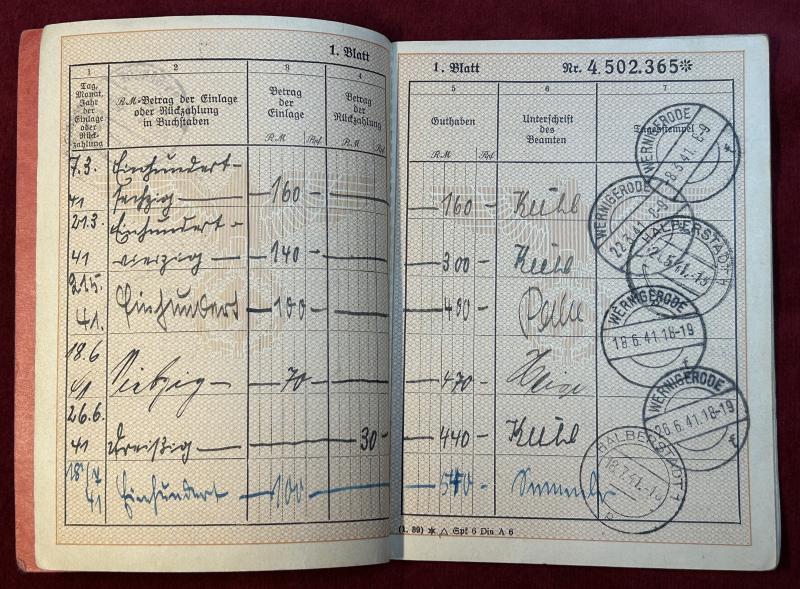 1. Blatt
1 2 3 4
Tag, Monat, Jahr der Einlage oder Rückzahlung
R.M-Betrag der Einlage oder Rückzahlung in Buchstaben
Betrag der Einlage
R.M Rpf
Betrag der Rückzahlung
R.M Rpf
7.3. 41 Einhundert-
sechzig — 160 —
21.3 41 Einhundert-
vierzig — 140 —
2.5. 41. Einhundert — 100 —
18.6 41 Siebzig — 70 —
26.6. 41 Dreißig — 30 —
18/7 41 Einhundert — 100 —
1. Blatt Nr. 4.502.365*
5 6 7
Guthaben
R.M Rpf
Unterschrift des Beamten
Tagesstempel
160 —
300 —
400 —
470 —
440 —
540 —
WERNIGERODE
8.3.41.8-9
WERNIGERODE
22.3.41.8-9
HALBERSTADT
2.5.41.-13
WERNIGERODE
18.6.41.18-19
WERNIGERODE
26.6.41.18-19
HALBERSTADT 1
18.7.41.-13
(1. 39) * △ Spf 6 Din A 6